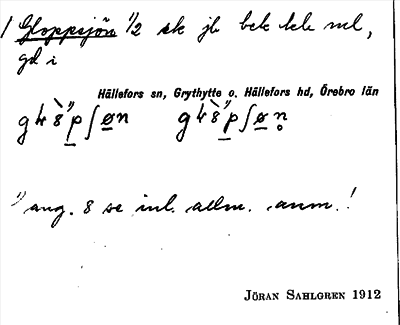 1 Gloppsjön ½ sk jb bek tek ml,
gd i
Hällefors sn, Grythytte o. Hällefors hd, Örebro län
1) ang. 8 se inl. allm. anm.!
JÖRAN SAHLGREN 1912